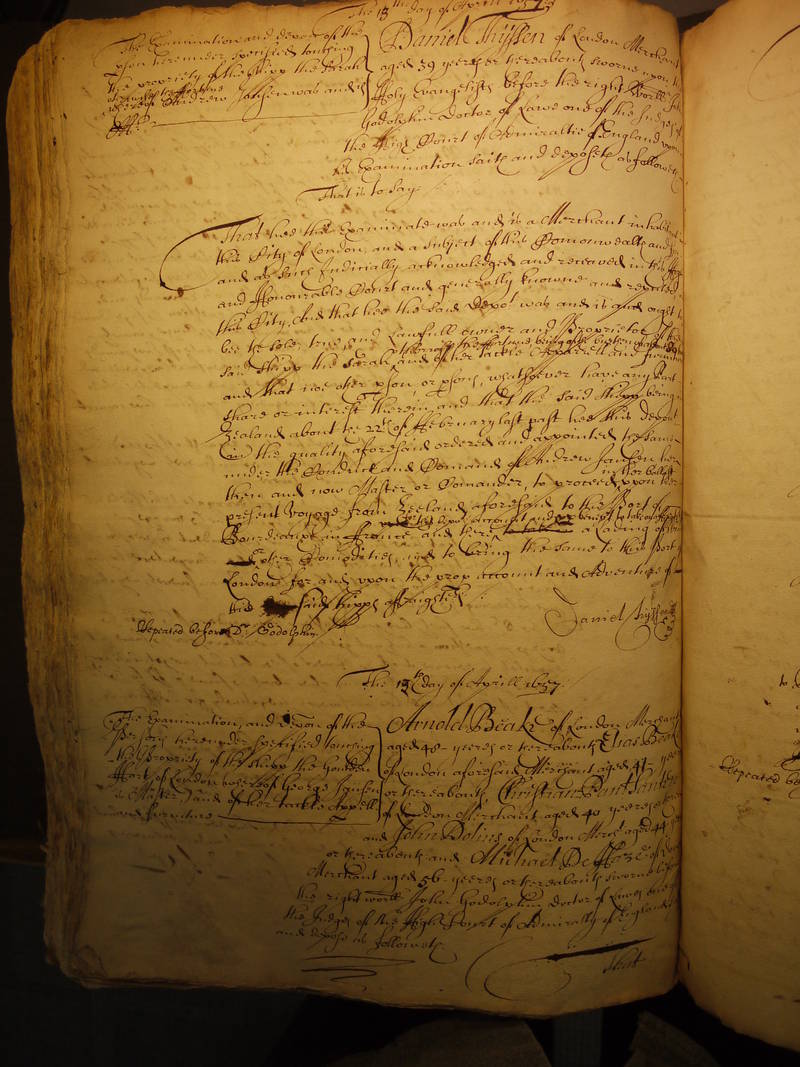 The 13th day of Aprill 1657
The Examination and depon of the
pson hereunder specified touching
the propriety of the shipp the Sarah
whereof Andrew Jansen was and is
Mr.
Daniel Thyssen of London Merchant
aged 39 yeeres or thereabouts sworne upon the
Holy Evangelists before the right worll John
Godolphin Doctor of Lawe one of the Judges of
the High Court of Admiraltie of England upon
his Examination saith and deposeth as followeth
That is to say
That hee this Examinate was and is a Merchant inhabiting
this City of London, and a subject of this Comonwealth and
and as such Judicially acknowledged and received in this high
and Honourable Court and generally knowne and reputed
this City. And that hee the said depot was and is and ought to
bee the sole, true and Lawfull owner and Proprietor of the
otherwise the ffortune being of the burthen
said shipp the Sarah and of her tackle Apparell and furniture
and that noe other pson, or psons, whatsoever have any part
share or interest therein, and that the said shipp being
Zealand about the 22th of ffebruary last past hee this depot
in the quality aforesaid ordered and appointed the same
under the Conduct and Comand of Andrew Jansen her
in her ballast
then and now Master or Comander, to proceed upon her
present Voyage from Zealand aforesaid to the Port of
Bourdeaux in ffrance and there a Lading of
other Comodities, and to bring the same to this Port
London for and upon the prop account and Adventure of
this said shipps ffraightes
Repeated before Dr. Godolphin.
Daniel Thyssen
The 13th day of Aprill 1657.
The Examination, and depon of the
persons hereunder specified touching
the Propriety of the shipp the Goulden
Hart of London whereof George Jansen
is Master, and of her tackle Appell
and furniture
Arnold Beake of London Merchant
aged 40 yeeres or thereabouts Elias Beake
of London aforesaid Merchant aged 45 yeeres
or thereabouts, Christian
of London Merchant aged 40 yeeres
and John Dolins of London Mercht aged 44
or thereabouts and Michael De
Merchant aged 56 yeeres or thereabouts sworne before
the right worll John Godolphin doctor of Lawes one of
the Judges of the High Court of Admiralty of England
and depose as followeth
That
Repeated before